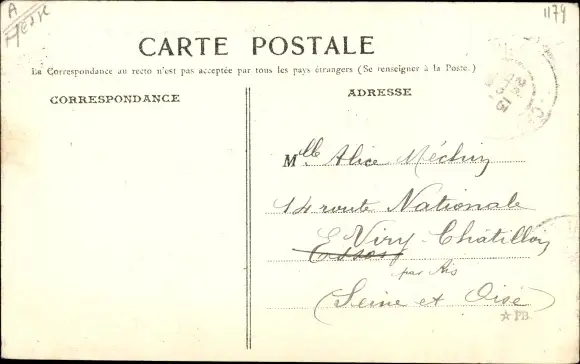 A
1179
CARTE POSTALE
La Correspondance au recto n'est pas acceptée par tous les pays étrangers (Se renseigner à la Poste.)
CORRESPONDANCE
ADRESSE
Mlle Alice Méchin
14 route Nationale
E Viry-Châtillon
Essos
par Ris
(Seine et Oise)
☆ PB